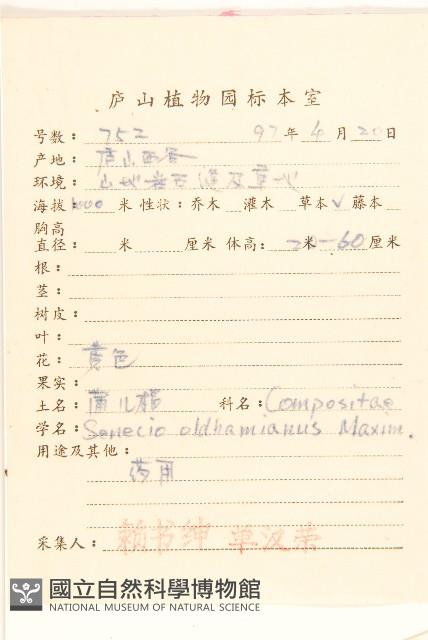 庐山植物园标本室
号数：752 97年4月20日
产地：庐山
环境：山地岩石边及草地
海拔：1000米 性状：乔木 灌木 草本✓ 藤本
胸高
直径： 米 厘米 体高： 20米-60厘米
根：
茎：
树皮：
叶：
花：黄色
果实：
土名：蒲儿根 科名：Compositae
学名：Senecio oldhamianus Maxim.
用途及其他：
药用
采集人：赖书绅 单汉荣
國立自然科學博物館
NATIONAL MUSEUM OF NATURAL SCIENCE